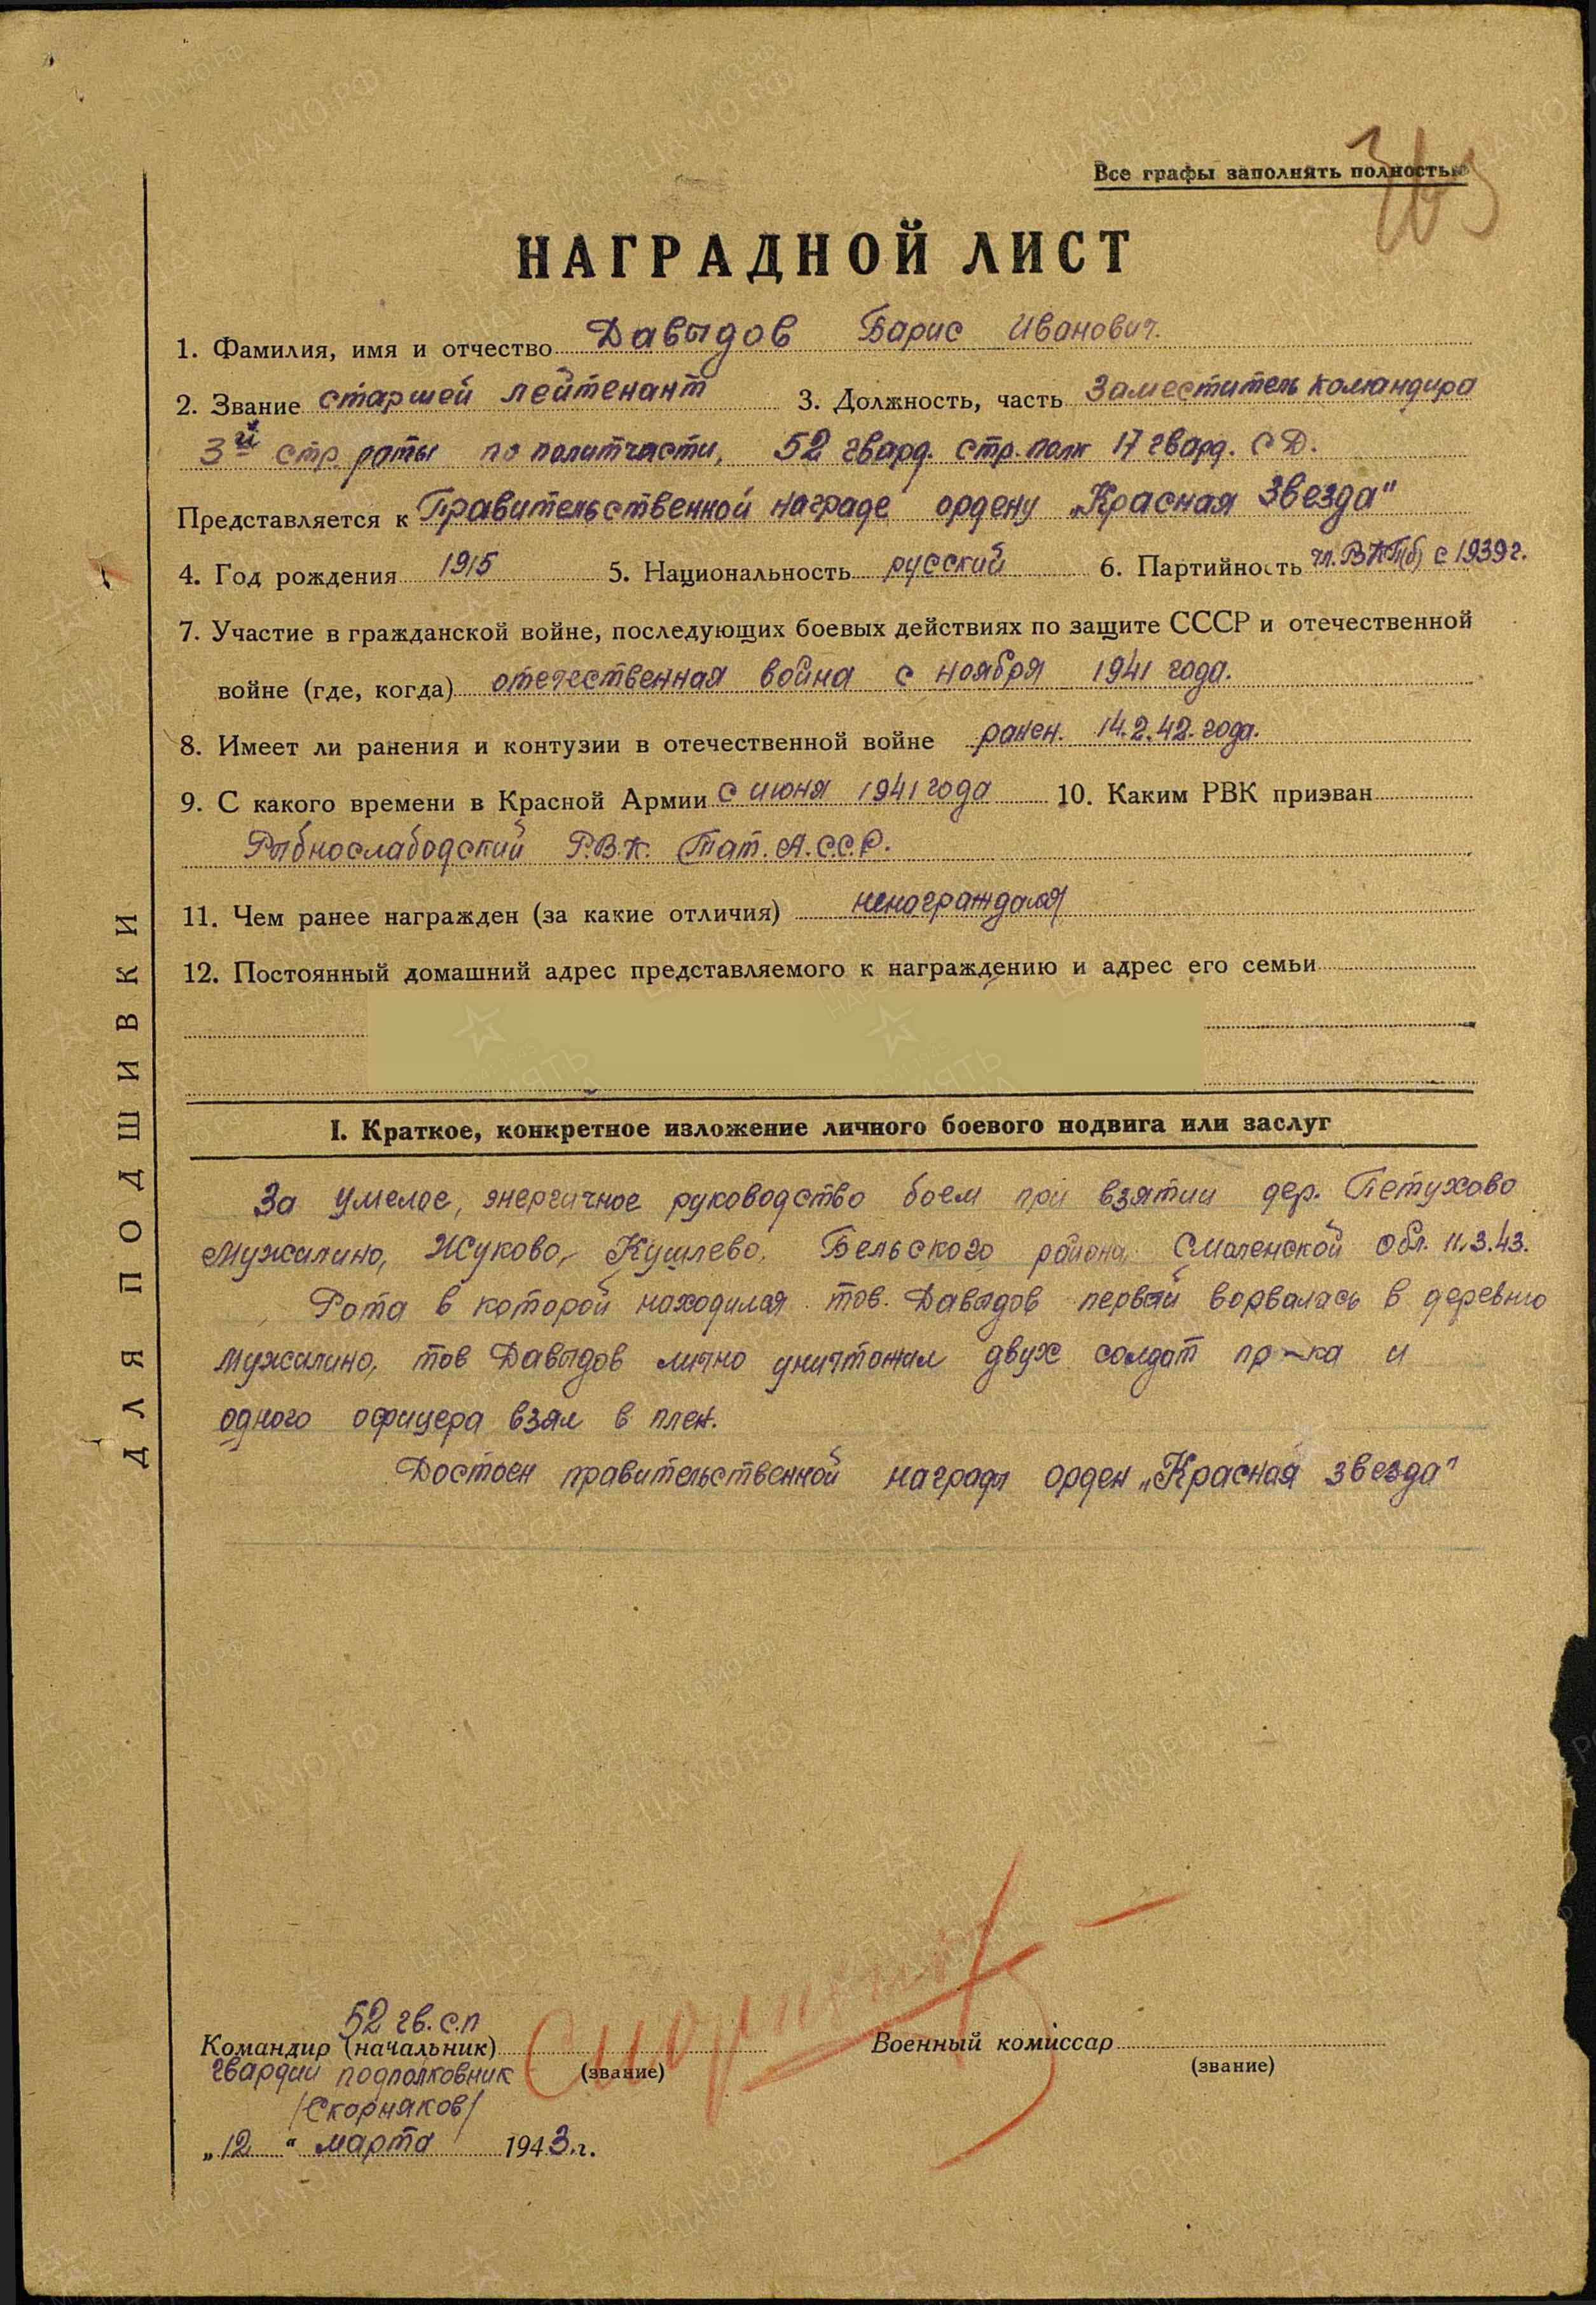 Все графы заполнять полностью
НАГРАДНОЙ ЛИСТ
1. Фамилия, имя и отчество Давыдов Барис Иванович.
2. Звание старшей лейтенант 3. Должность, часть Заместитель командира
3й стр. роты по политчасти, 52 гвард. стр. полк 17 гвард. СД.
Представляется к Правительственной награде ордену „Красная Звезда"
4. Год рождения 1915 5. Национальность русский 6. Партийность чл. ВКП(б) с 1939 г.
7. Участие в гражданской войне, последующих боевых действиях по защите СССР и отечественной
войне (где, когда) отечественная война с ноября 1941 года.
8. Имеет ли ранения и контузии в отечественной войне ранен. 14.2.42. года.
9. С какого времени в Красной Армии с июня 1941 года 10. Каким РВК призван
Рыбнослабодский Р.В.К. Тат. А.С.С.Р.
11. Чем ранее награжден (за какие отличия) ненаграждался
12. Постоянный домашний адрес представляемого к награждению и адрес его семьи
I. Краткое, конкретное изложение личного боевого подвига или заслуг
За умелое, энергичное руководство боем при взятии дер. Петухово
Мужилино, Жуково, Кушлево, Бельского района Смоленской обл. 11.3.43.
Рота в которой находился тов. Давыдов первый ворвалась в деревню
Мужилино, тов Давыдов лично уничтожил двух солдат пр-ка и
одного офицера взял в плен.
Достоен правительственной награды орден „Красная звезда"
52 гв. с.п
Командир (начальник) Военный комиссар
гвардии подполковник (звание) (звание)
/Скорняков/
„12" марта 1943 г.
ДЛЯ ПОДШИВКИ